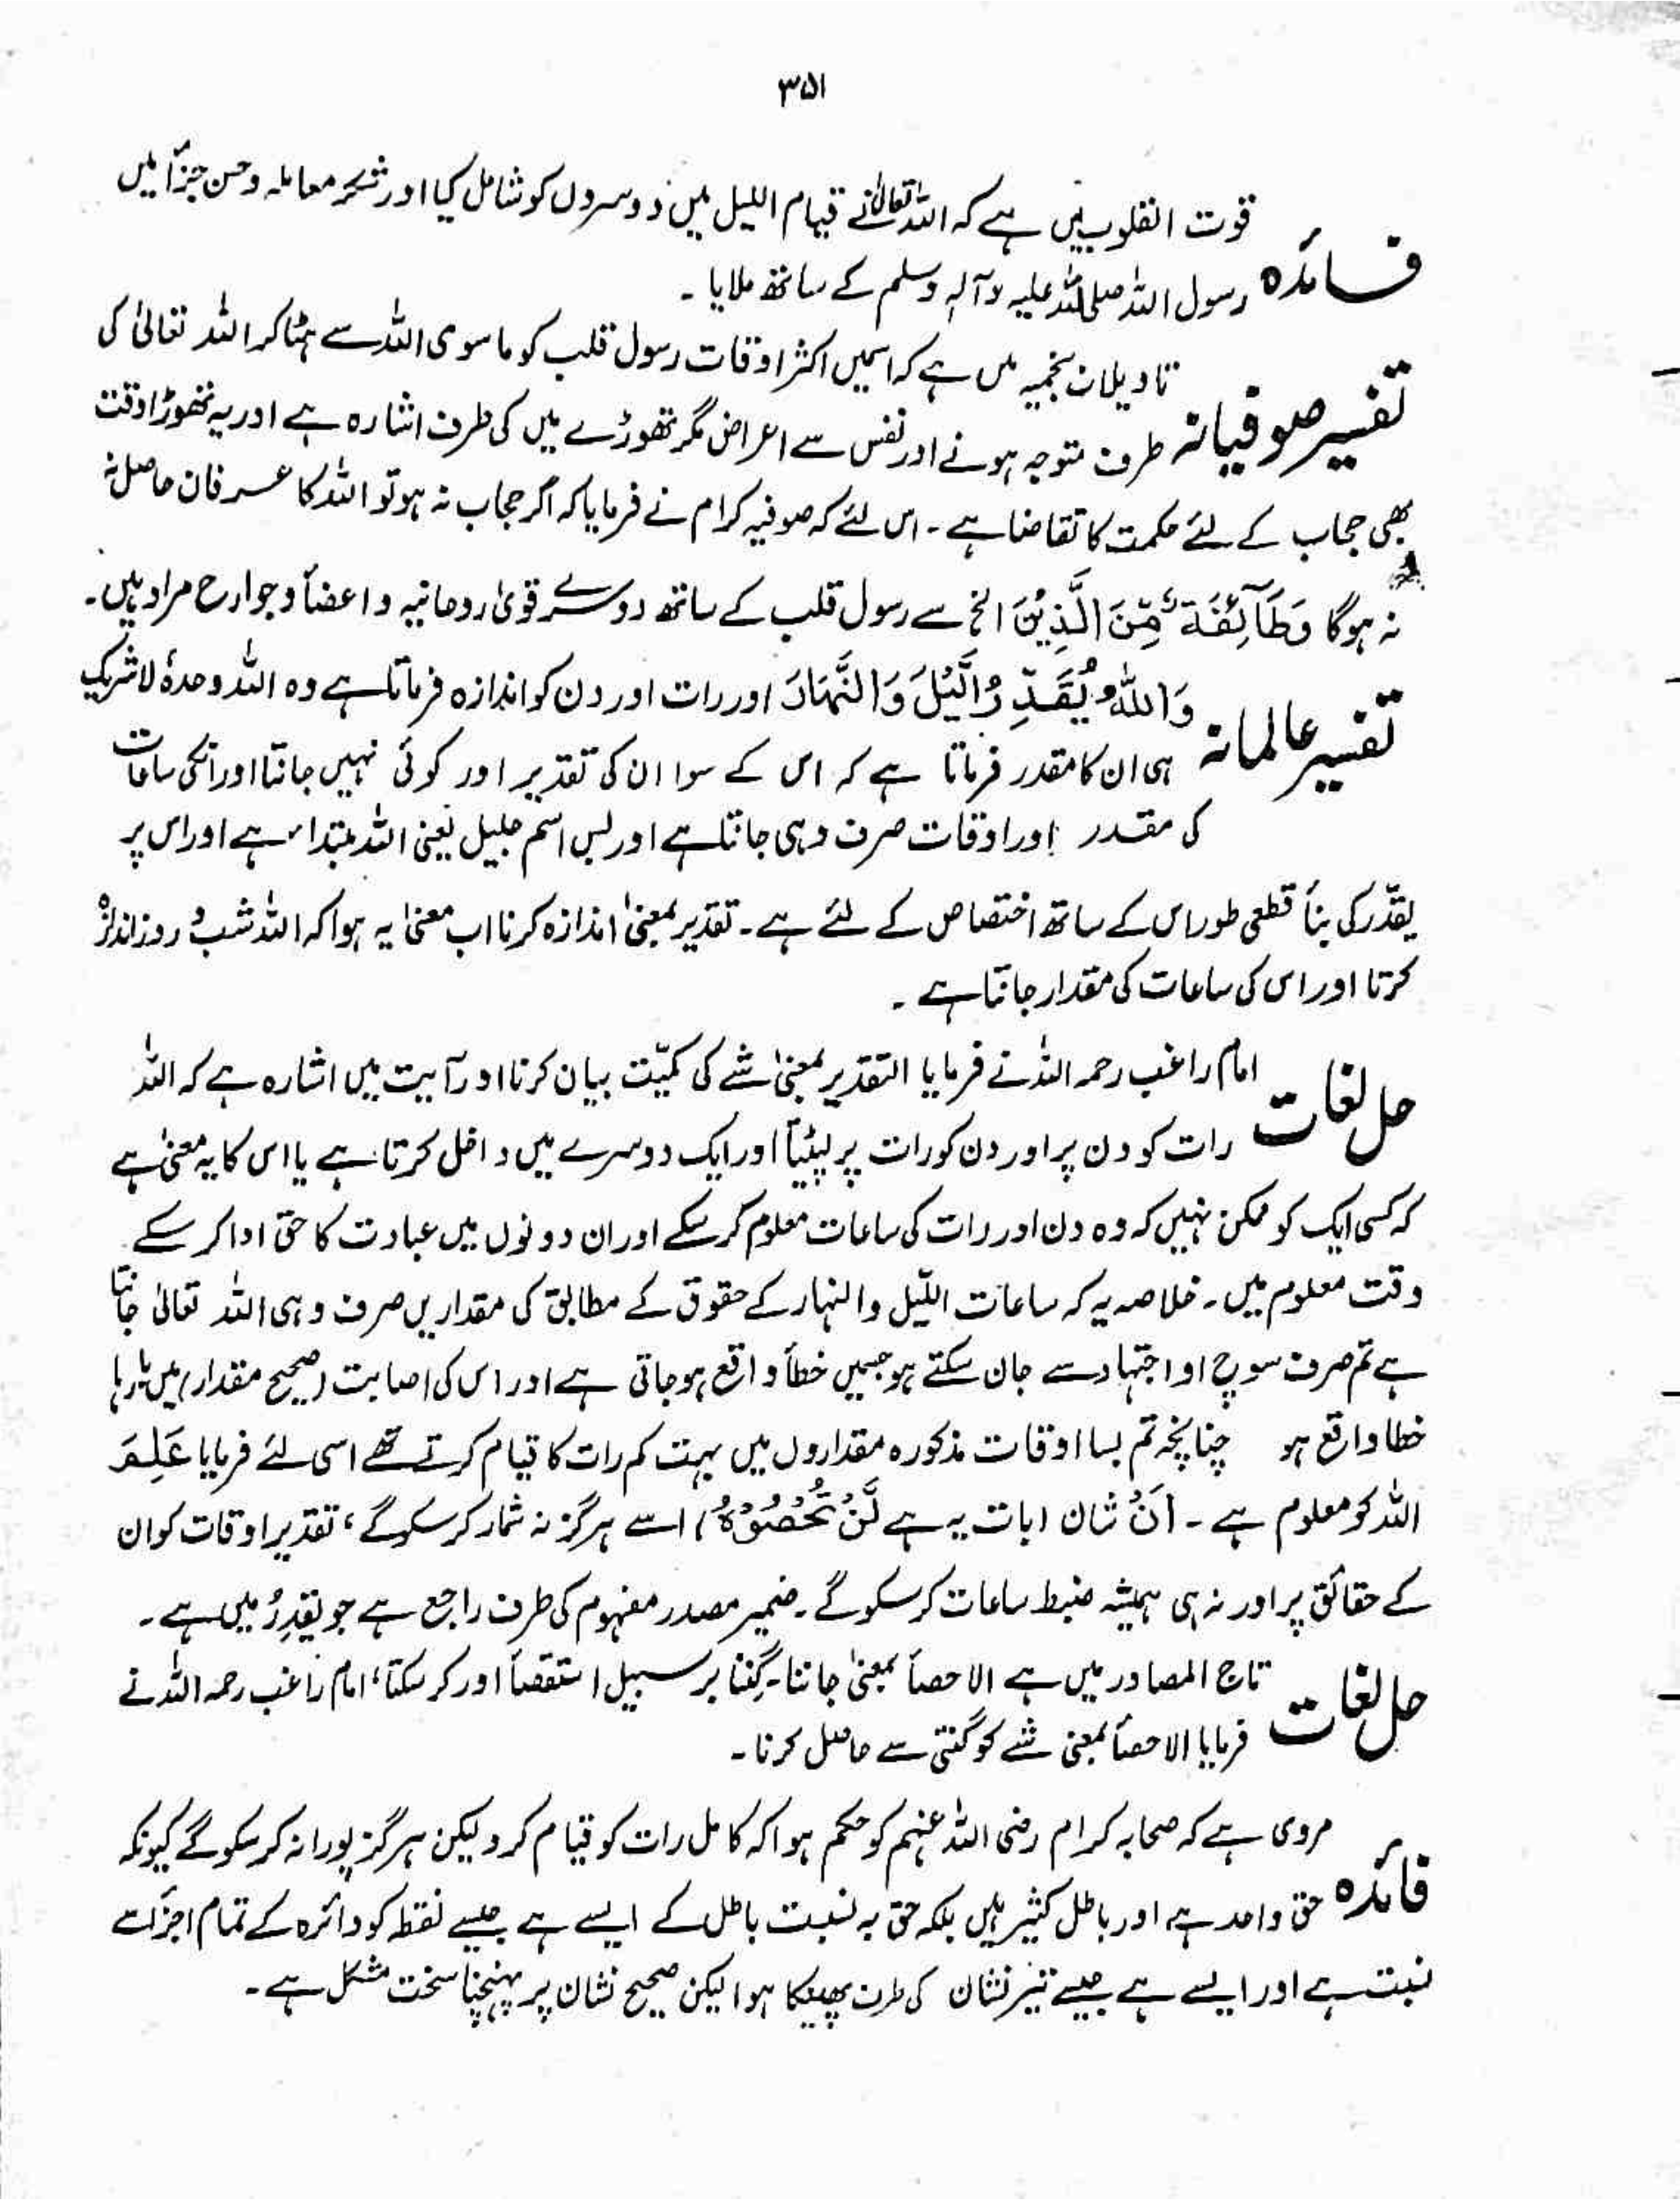 ۳۵۱
قوت القلوب میں ہے کہ اللہ تعالیٰ نے قیام اللیل میں دوسروں کو شامل کیا اور شکر معاملہ و حسن جزأ میں
فائدہ رسول اللہ صلی اللہ علیہ وآلہٖ وسلم کے ساتھ ملایا ۔
تاویلات نجمیہ میں ہے کہ اسمیں اکثر اوقات رسول قلب کو ماسوی اللہ سے ہٹا کر اللہ تعالیٰ کی
تفسیر صوفیانہ طرف متوجہ ہونے اور نفس سے اعراض مگر تھوڑے میں کی طرف اشارہ ہے اور یہ تھوڑا وقت
بھی حجاب کے لئے حکمت کا تقاضا ہے ۔ اس لئے کہ صوفیہ کرام نے فرمایا کہ اگر حجاب نہ ہو تو اللہ کا عرفان حاصل نہ
نہ ہوگا وَطَآئِفَۃٌ مِّنَ الَّذِیْنَ الخ سے رسول قلب کے ساتھ دوسرے قویٰ روحانیہ و اعضأ و جوارح مراد ہیں۔
وَاللّٰہُ یُقَدِّرُ الَّیْلَ وَالنَّہَارَ اور رات اور دن کو اندازہ فرماتا ہے وہ اللہ وحدہٗ لاشریک
تفسیر عالمانہ ہی ان کا مقدر فرماتا ہے کہ اس کے سوا ان کی تقدیر اور کوئی نہیں جانتا اور انکی ساعات
کی مقدر اور اوقات صرف وہی جانتا ہے اور بس اسم جلیل یعنی اللہ مبتداء ہے اور اس پر
یقدّر کی بنأ قطعی طور اس کے ساتھ اختصاص کے لئے ہے ۔ تقدیر بمعنیٰ اندازہ کرنا اب معنیٰ یہ ہوا کہ اللہ شب و روز اندازہ
کرتا اور اس کی ساعات کی مقدار جانتا ہے ۔
امام راغب رحمہ اللہ نے فرمایا التقدیر بمعنیٰ شے کی کمیّت بیان کرنا اور آیت میں اشارہ ہے کہ اللہ
حل لغات رات کو دن پر اور دن کو رات پر لپٹیتا اور ایک دوسرے میں داخل کرتا ہے یا اس کا یہ معنیٰ ہے
کہ کسی ایک کو ممکن نہیں کہ وہ دن اور رات کی ساعات معلوم کر سکے اور ان دونوں میں عبادت کا حق ادا کر سکے
وقت معلوم میں ۔ خلاصہ یہ کہ ساعات اللیل والنہار کے حقوق کے مطابق کی مقداریں صرف وہی اللہ تعالیٰ جانتا
ہے تم صرف سوچ او اجتہاد سے جان سکتے ہو جسمیں خطأ واقع ہو جاتی ہے اور اس کی اصابت (صحیح مقدار) میں بارہا
خطا واقع ہو چنانچہ تم بسا اوقات مذکورہ مقداروں میں بہت کم رات کا قیام کرتے تھے اسی لئے فرمایا عَلِمَ
اللہ کو معلوم ہے ۔ اَنْ شان ابات یہ ہے لَّنْ تُحْصُوْہُ) اسے ہرگز نہ شمار کر سکو گے، تقدیر اوقات کو ان
کے حقائق پر اور نہ ہی ہمیشہ ضبط ساعات کر سکو گے ۔ ضمیر مصدر مفہوم کی طرف راجع ہے جو یقدِرُ میں ہے ۔
تاج المصادر میں ہے الاحصأ بمعنیٰ جاننا ۔ گننا بر سبیل استقصأ اور کر سکتا، امام راغب رحمہ اللہ نے
حل لغات فرمایا الاحصأ بمعنیٰ شے کو گنتی سے حاصل کرنا ۔
مروی ہے کہ صحابہ کرام رضی اللہ عنہم کو حکم ہوا کہ کامل رات کو قیام کرو لیکن ہرگز پورا نہ کر سکو گے کیونکہ
فائدہ حق واحد ہے اور باطل کثیر ہیں بلکہ حق بہ نسبت باطل کے ایسے ہے جیسے نقطہ کو دائرہ کے تمام اجزأ سے
نسبت ہے اور ایسے ہے جیسے تیر نشان کی طرف پھینکا ہوا لیکن صحیح نشان پر پہنچنا سخت مشکل ہے ۔